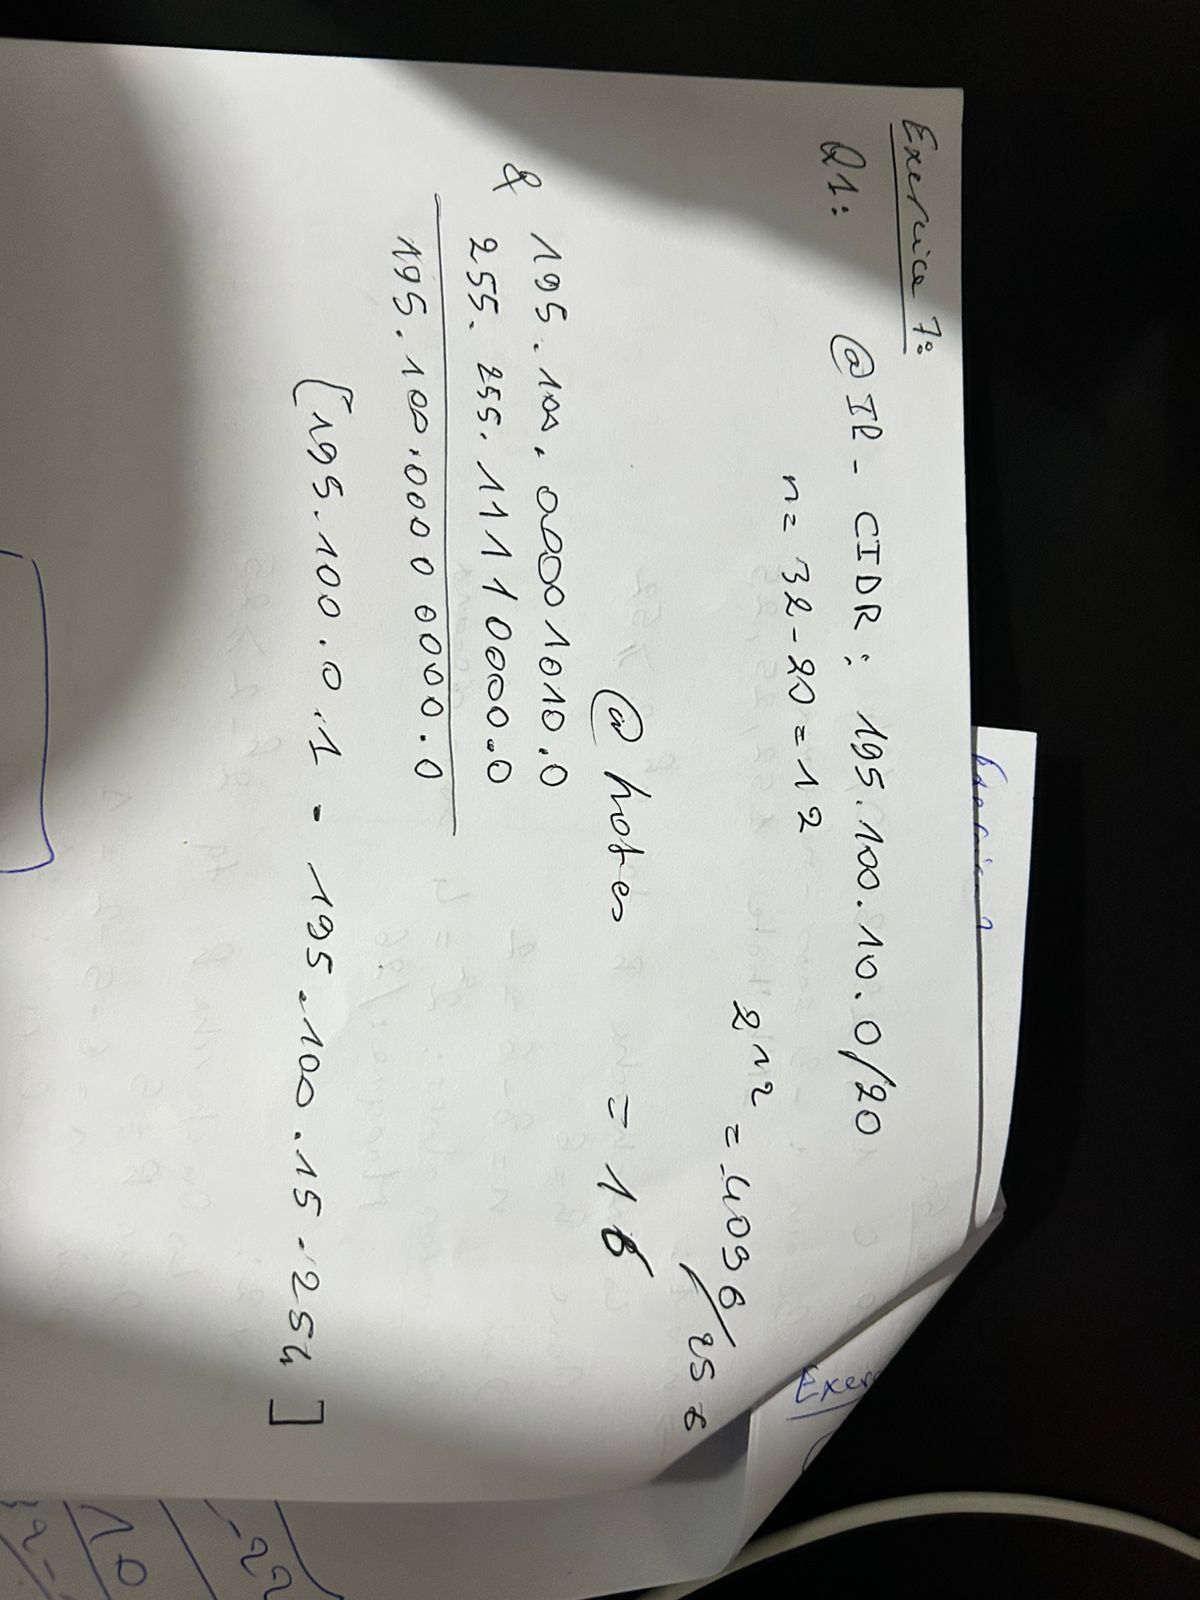 Exercice ?
Exercice 7:
Q1: @IP - CIDR : 195.100.10.0/20
n = 32 - 20 = 12
2^12 = 4096/256
@ hotes = 16
195.100.00001010.0
&
255.255.11110000.0
195.100.0000 0000.0
[195.100.0.1 - 195.100.15.254]
Exer
-22
10
2-